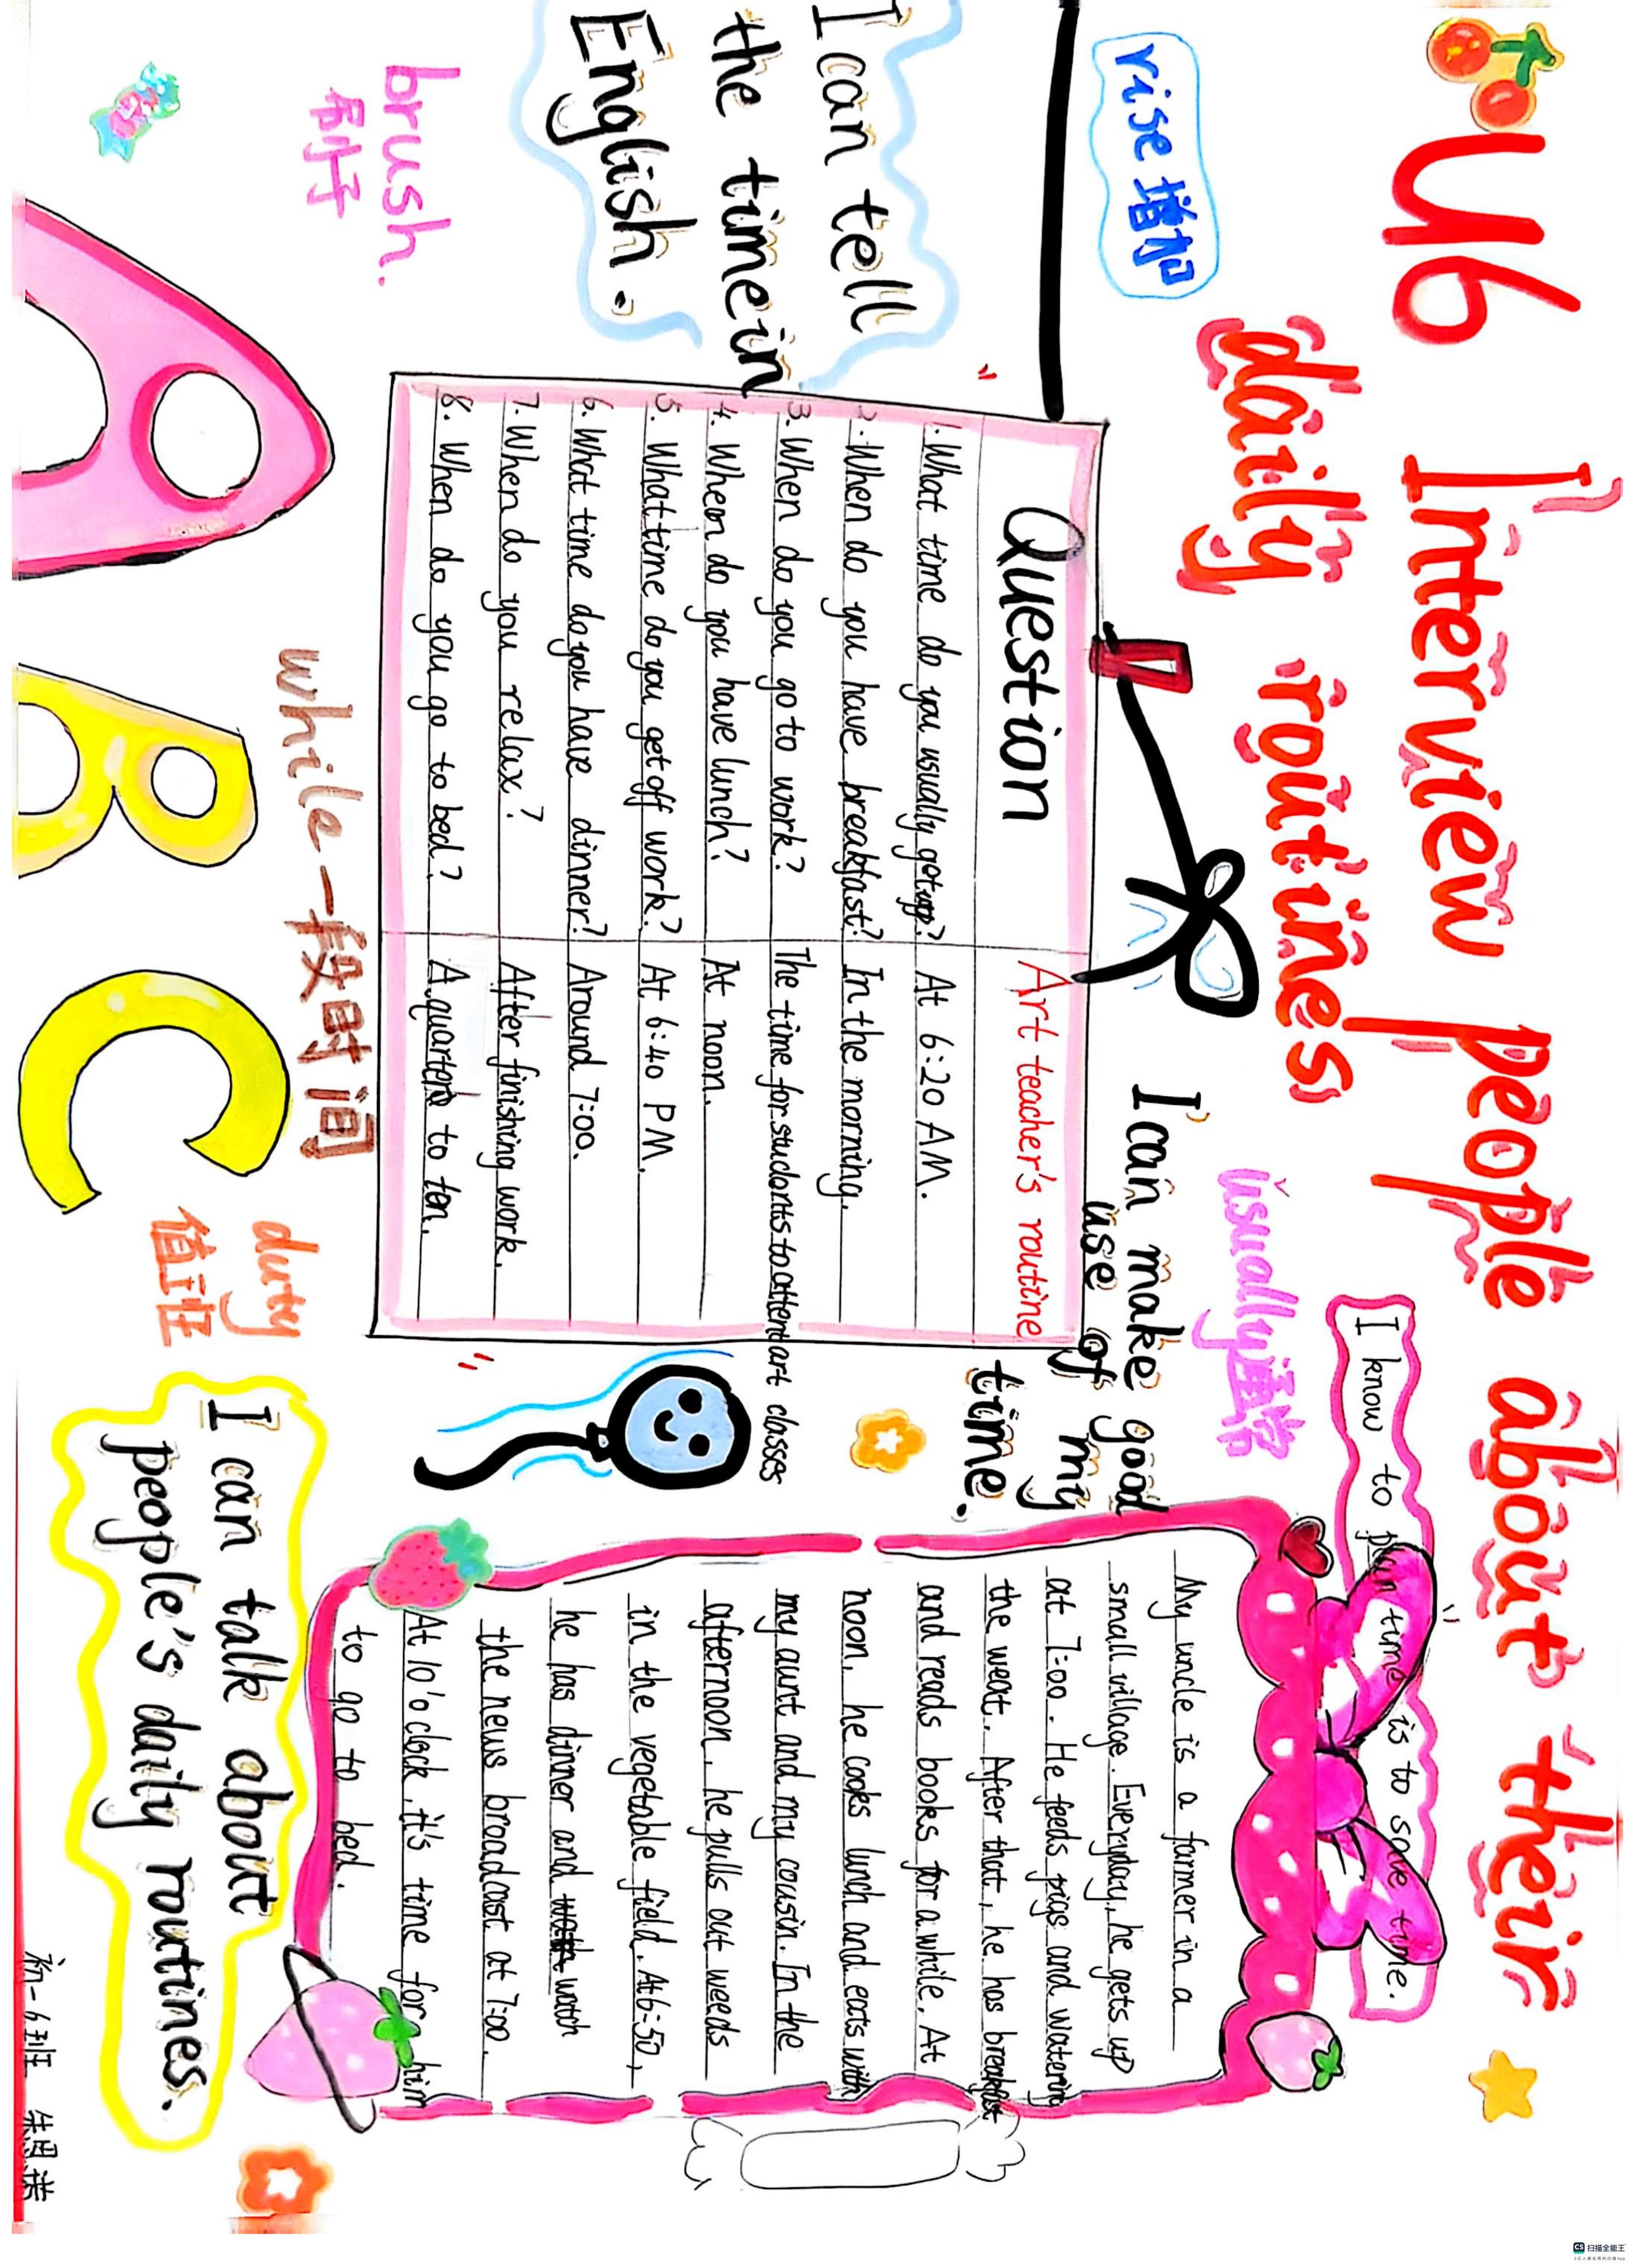 U6 Interview people about their
daily routines
rise 增加
usually 通常
I know to
is to save time.
I can tell
the time in
English.
I can make good
use of my
time.
Question
Art teacher's routine
1. What time do you usually get up? At 6:20 AM.
2. When do you have breakfast? In the morning.
3. When do you go to work? The time for students to attend art classes
4. When do you have lunch? At noon.
5. What time do you get off work? At 6:40 PM.
6. What time do you have dinner? Around 7:00.
7. When do you relax? After finishing work.
8. When do you go to bed? A quarter to ten.
My uncle is a farmer in a
small village. Everyday, he gets up
at 7:00. He feeds pigs and watering
the weat. After that, he has breakfast
and reads books for a while. At
noon, he cooks lunch and eats with
my aunt and my cousin. In the
afternoon, he pulls out weeds
in the vegetable field. At 6:50,
he has dinner and watch
the news broadcast at 7:00.
At 10'o clock, it's time for him
to go to bed.
brush.
刷子
while 一段时间
duty
值班
A B C
I can talk about
people's daily routines.
初一6班
CS 扫描全能王
3亿人都在用的扫描App